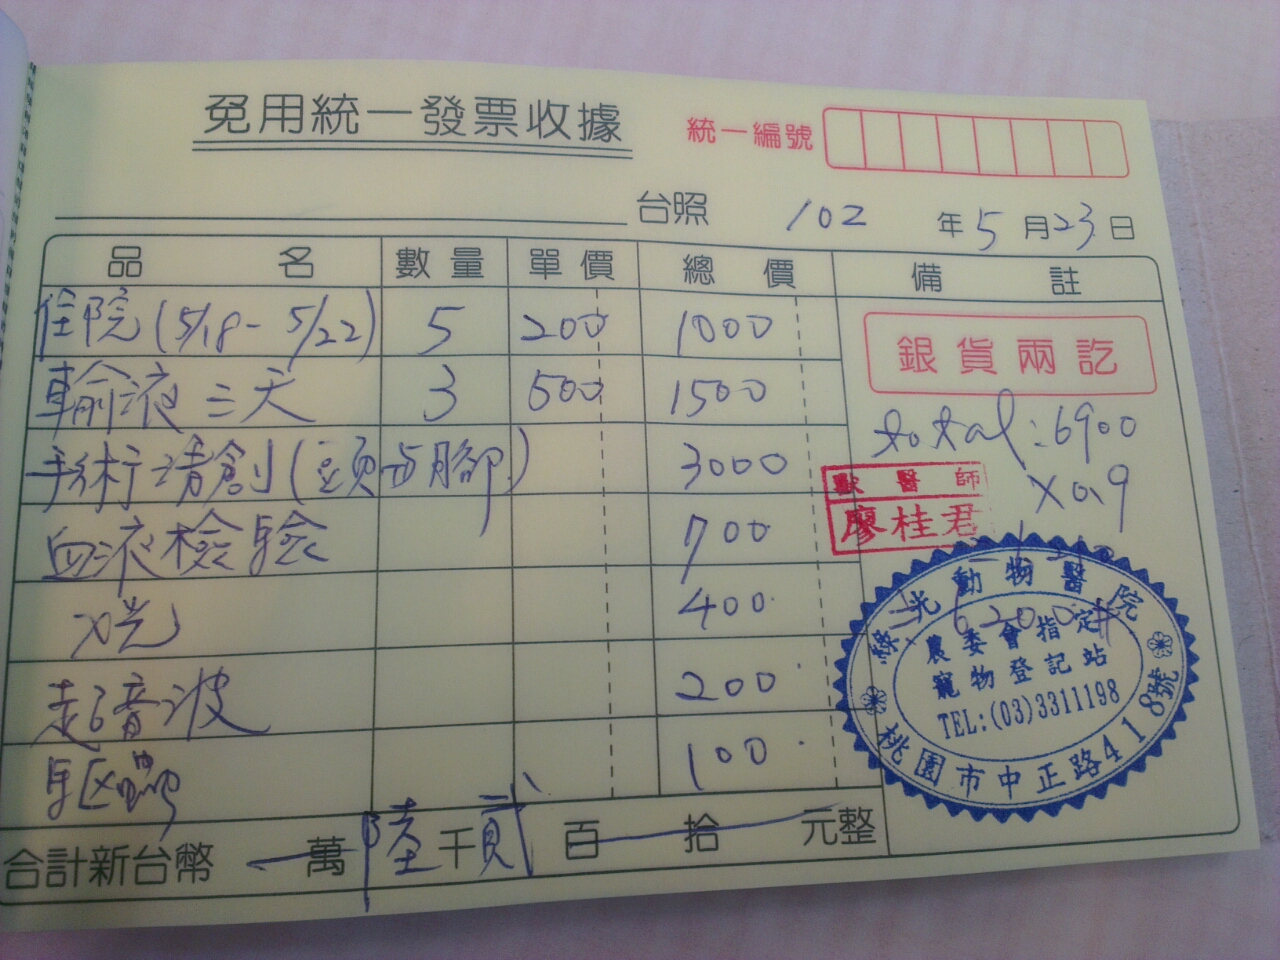 免用統一發票收據
統一編號
台照 102 年 5 月 23 日
品名 數量 單價 總價 備註
住院(5/18-5/22) 5 200 1000
輸液三天 3 500 1500
手術清創(頭與腳) 3000
血液檢驗 700
X光 400
超音波 200
驅蟲 100
銀貨兩訖
total:6900
x0.9
獸醫師
廖桂君
6200#
動物醫院
農委會指定
寵物登記站
TEL:(03)3311198
桃園市中正路418號
合計新台幣 萬 陸 千 貳 百 拾 元整